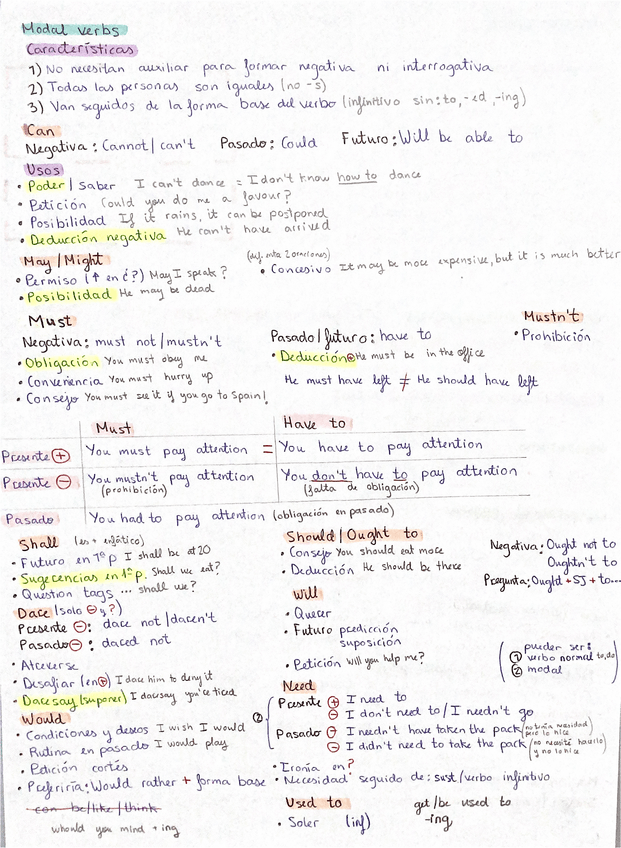 Modal verbs
Características
1) No necesitan auxiliar para formar negativa ni interrogativa
2) Todas las personas son iguales (no -s)
3) Van seguidos de la forma base del verbo (infinitivo sin: to, -ed, -ing)
Can
Negativa: Cannot/can't Pasado: Could Futuro: Will be able to
Usos
• Poder/saber I can't dance = I don't know how to dance
• Petición Could you do me a favour?
• Posibilidad If it rains, it can be postponed
• Deducción negativa He can't have arrived
May/Might
• Permiso (↑ en ¿?) May I speak?
• Posibilidad He may be dead
• Concesivo It may be more expensive, but it is much better
Must
Negativa: must not/mustn't
• Obligación You must obey me
• Conveniencia You must hurry up
• Consejo You must see it if you go to Spain!
Pasado/futuro: have to
• Deducción ⊕ He must be in the office
He must have left ≠ He should have left
Mustn't
• Prohibición
Must Have to
Presente ⊕ You must pay attention = You have to pay attention
Presente ⊖ You mustn't pay attention You don't have to pay attention
(prohibición) (falta de obligación)
Pasado You had to pay attention (obligación en pasado)
Shall (es + enfático)
• Futuro en 1ª p I shall be at 20
• Sugerencias en 1ª p. Shall we eat?
• Question tags ... shall we?
Dare (solo ⊖ y ?)
Presente ⊖: dare not/daren't
Pasado ⊖: dared not
• Atreverse
• Desafiar (en ⊕) I dare him to deny it
• Daresay (suponer) I daresay you're tired
Would
• Condiciones y deseos I wish I would
• Rutina en pasado I would play
• Petición cortés
• Preferiría: Would rather + forma base
can be/like/think
whould you mind + ing
Should/Ought to
• Consejo You should eat more
• Deducción He should be there
Negativa: Ought not to
Oughtn't to
Pregunta: Ought + SJ + to...
Will
• Querer
• Futuro predicción
suposición
• Petición Will you help me?
Need
(pueden ser:
① verbo normal to, do
② modal)
② Presente ⊕ I need to
⊖ I don't need to/I needn't go
Pasado ⊖ I needn't have taken the pack (no tenía necesidad pero lo hice)
⊖ I didn't need to take the pack (no necesité hacerlo y no lo hice)
• Ironía en ?
• Necesidad seguido de: sust/verbo infinitivo
Used to
• Soler (inf)
get/be used to
-ing